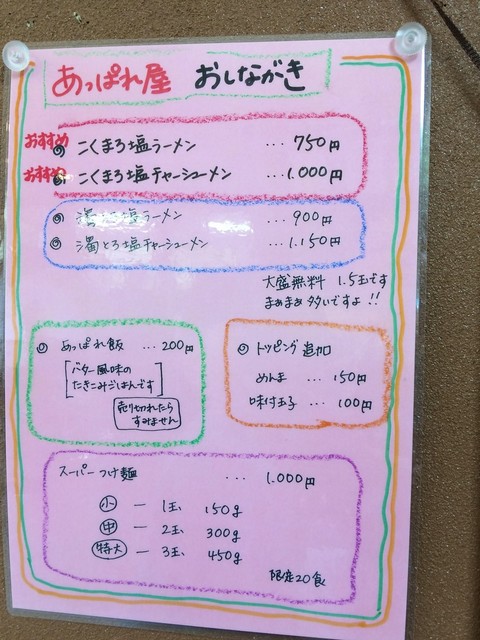 あっぱれ屋 おしながき
おすすめ ◎ こくまろ塩ラーメン … 750円
おすすめ ◎ こくまろ塩チャーシューメン … 1.000円
◎ 濁とろ塩ラーメン … 900円
◎ 濁とろ塩チャーシューメン … 1.150円
大盛無料 1.5玉です
まぁまぁ 多いですよ!!
◎ あっぱれ飯 … 200円
[バター風味の
たきこみごはんです]
売り切れたら
すみません
◎ トッピング 追加
めんま … 150円
味付玉子 … 100円
スーパーつけ麺 … 1.000円
小 ー 1玉 150g
中 ー 2玉 300g
特大 ー 3玉 450g
限定20食